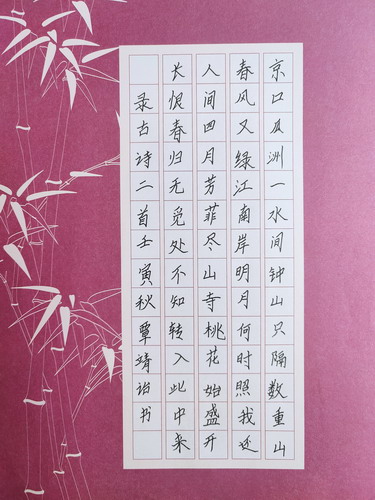 京口瓜洲一水间钟山只隔数重山
春风又绿江南岸明月何时照我还
人间四月芳菲尽山寺桃花始盛开
长恨春归无觅处不知转入此中来
录古诗二首壬寅秋覃靖诒书